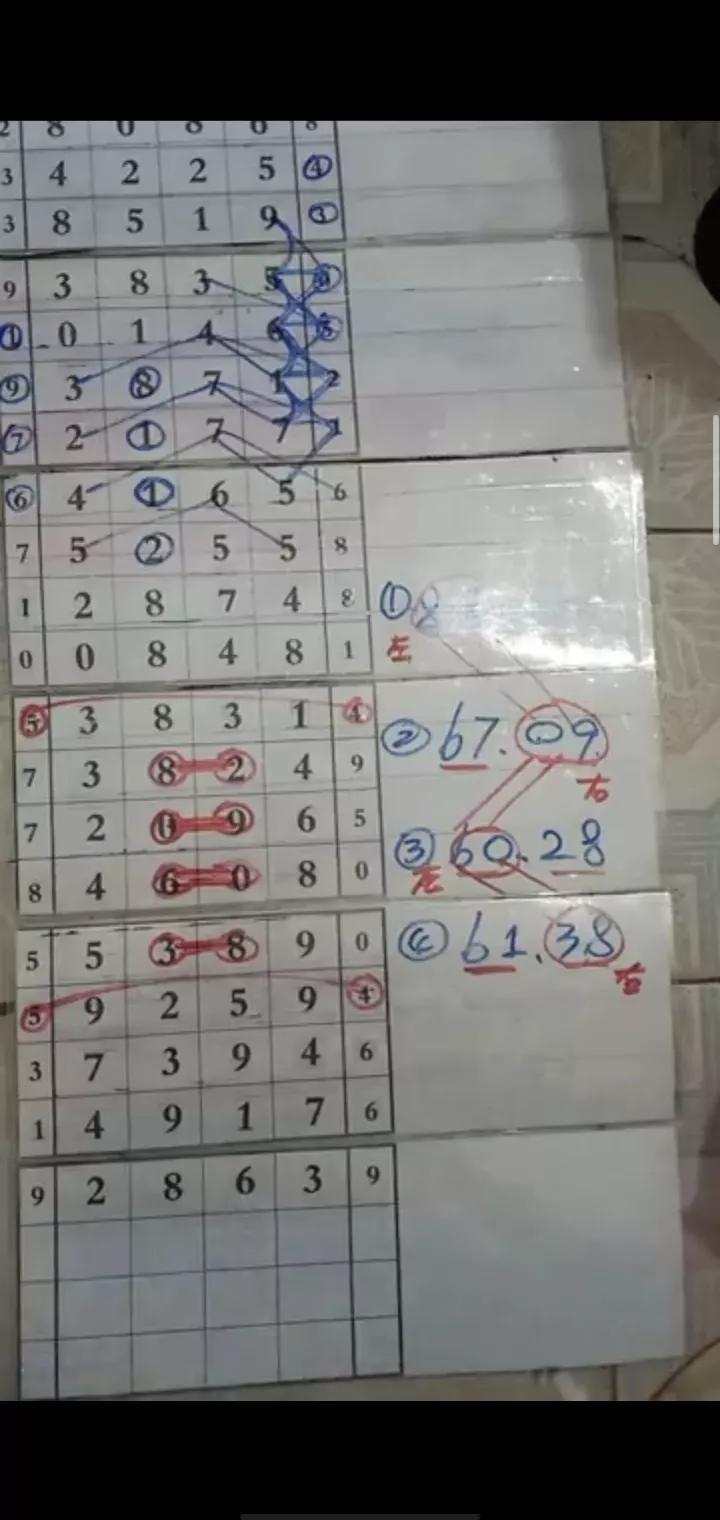 2 8 0 8 6 8
3 4 2 2 5 4
3 8 5 1 9 3
9 3 8 3 5
1 0 1 4 6
9 3 8 7 1 2
7 2 1 7 7 1
6 4 1 6 5 6
7 5 2 5 5 8
1 2 8 7 4 8
① 8
0 0 8 4 8 1
5 3 8 3 1 4
② 67.09
7 3 8 2 4 9
7 2 0 9 6 5
③ 60.28
8 4 6 0 8 0
5 5 3 8 9 0
④ 61.38
5 9 2 5 9 4
3 7 3 9 4 6
1 4 9 1 7 6
9 2 8 6 3 9